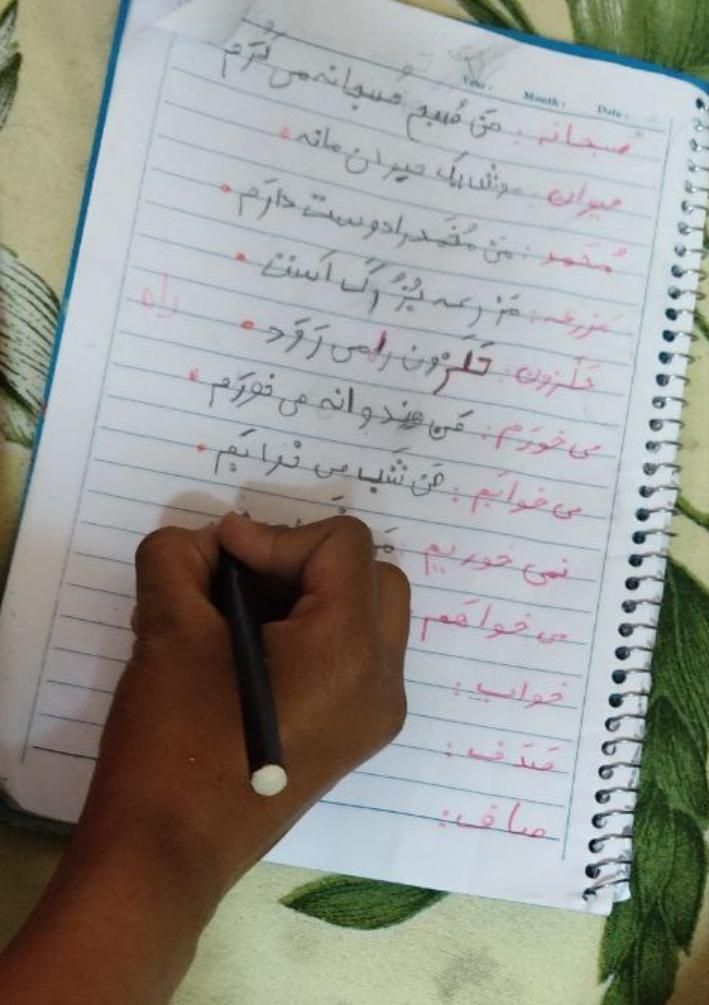 Year: Month: Date:
صبحانه: مَن صُبح صُبحانه می خُرَم
حیوان: موشا یک حیوان مانه
مُحَمد: مَن مُحَمد را دوست دارَم
مَزرعه: مَزرعه بُزُرگ اَست
حَلَزون: حَلَزون راه می رَوَد راه
می خورَم: مَن هندوانه می خورَم
می خوابَم: مَن شَب می خوابَم
نمی خوریم: مَ
می خواهَم:
خواب:
صَدَف:
صاف: